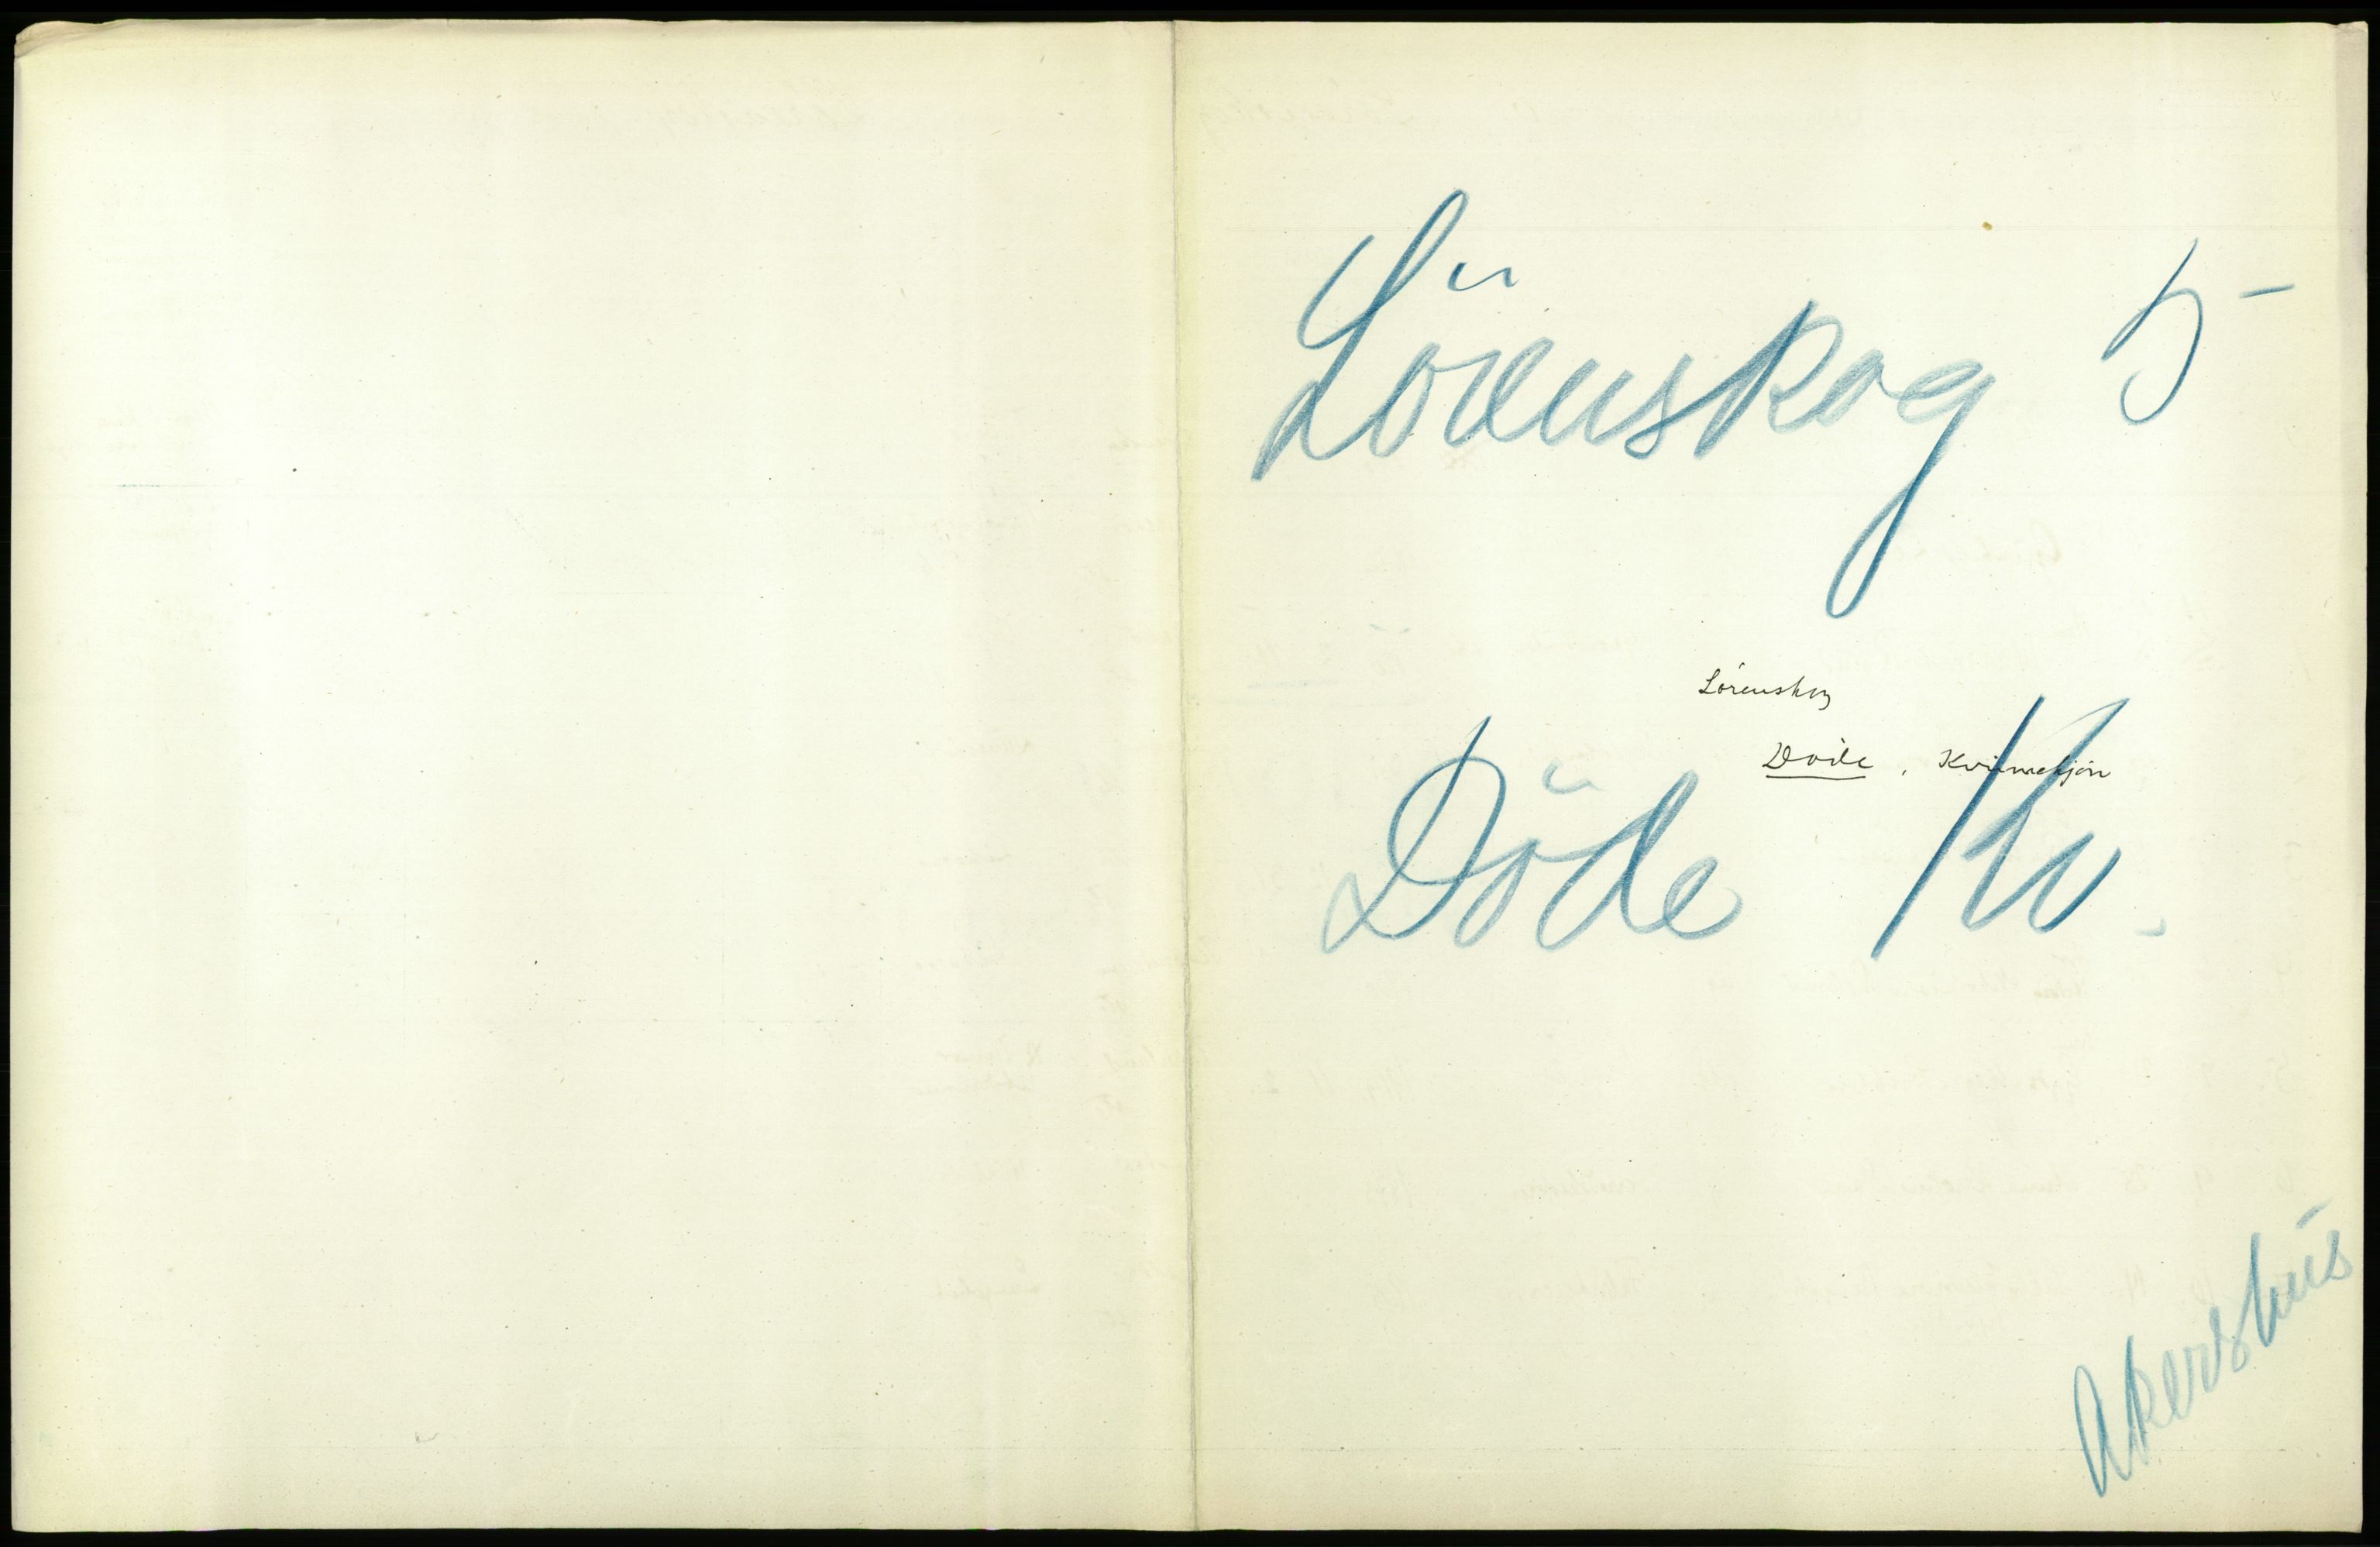 Lörenskog 5
Lörenskog
Døde, Kvinnekjön
Döde Kv.
Akershus